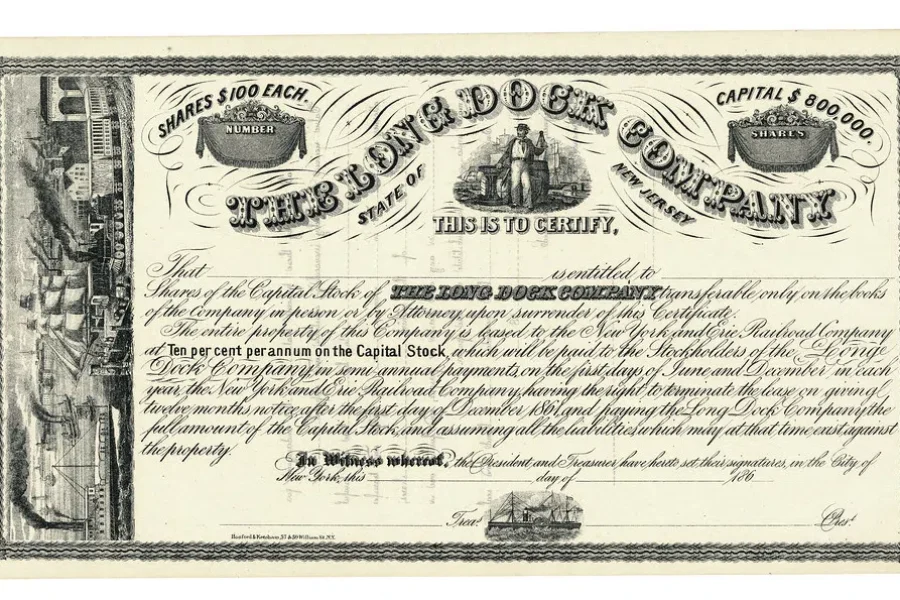 SHARES $100 EACH.
NUMBER
THE LONG DOCK COMPANY
STATE OF NEW JERSEY
CAPITAL $800,000.
SHARES
THIS IS TO CERTIFY,
That is entitled to
Shares of the Capital Stock of THE LONG DOCK COMPANY transferable only on the books
of the Company in person or by Attorney upon surrender of this Certificate.
The entire property of this Company is leased to the New York and Erie Railroad Company
at Ten per cent per annum on the Capital Stock, which will be paid to the Stockholders of the Longe
Dock Company in semi-annual payments, on the first days of June and December in each
year, the New York and Erie Railroad Company, having the right to terminate the lease on giving
twelve months notice after the first day of December 1861, and paying the Long Dock Company the
full amount of the Capital Stock, and assuming all the liabilities which may at that time exist against
the property.
In Witness whereof, the President and Treasurer have hereto set their signatures, in the City of
New York, this day of 186
Treas. Prest.
Hanford & Ketcham, 57 & 59 William St. N.Y.